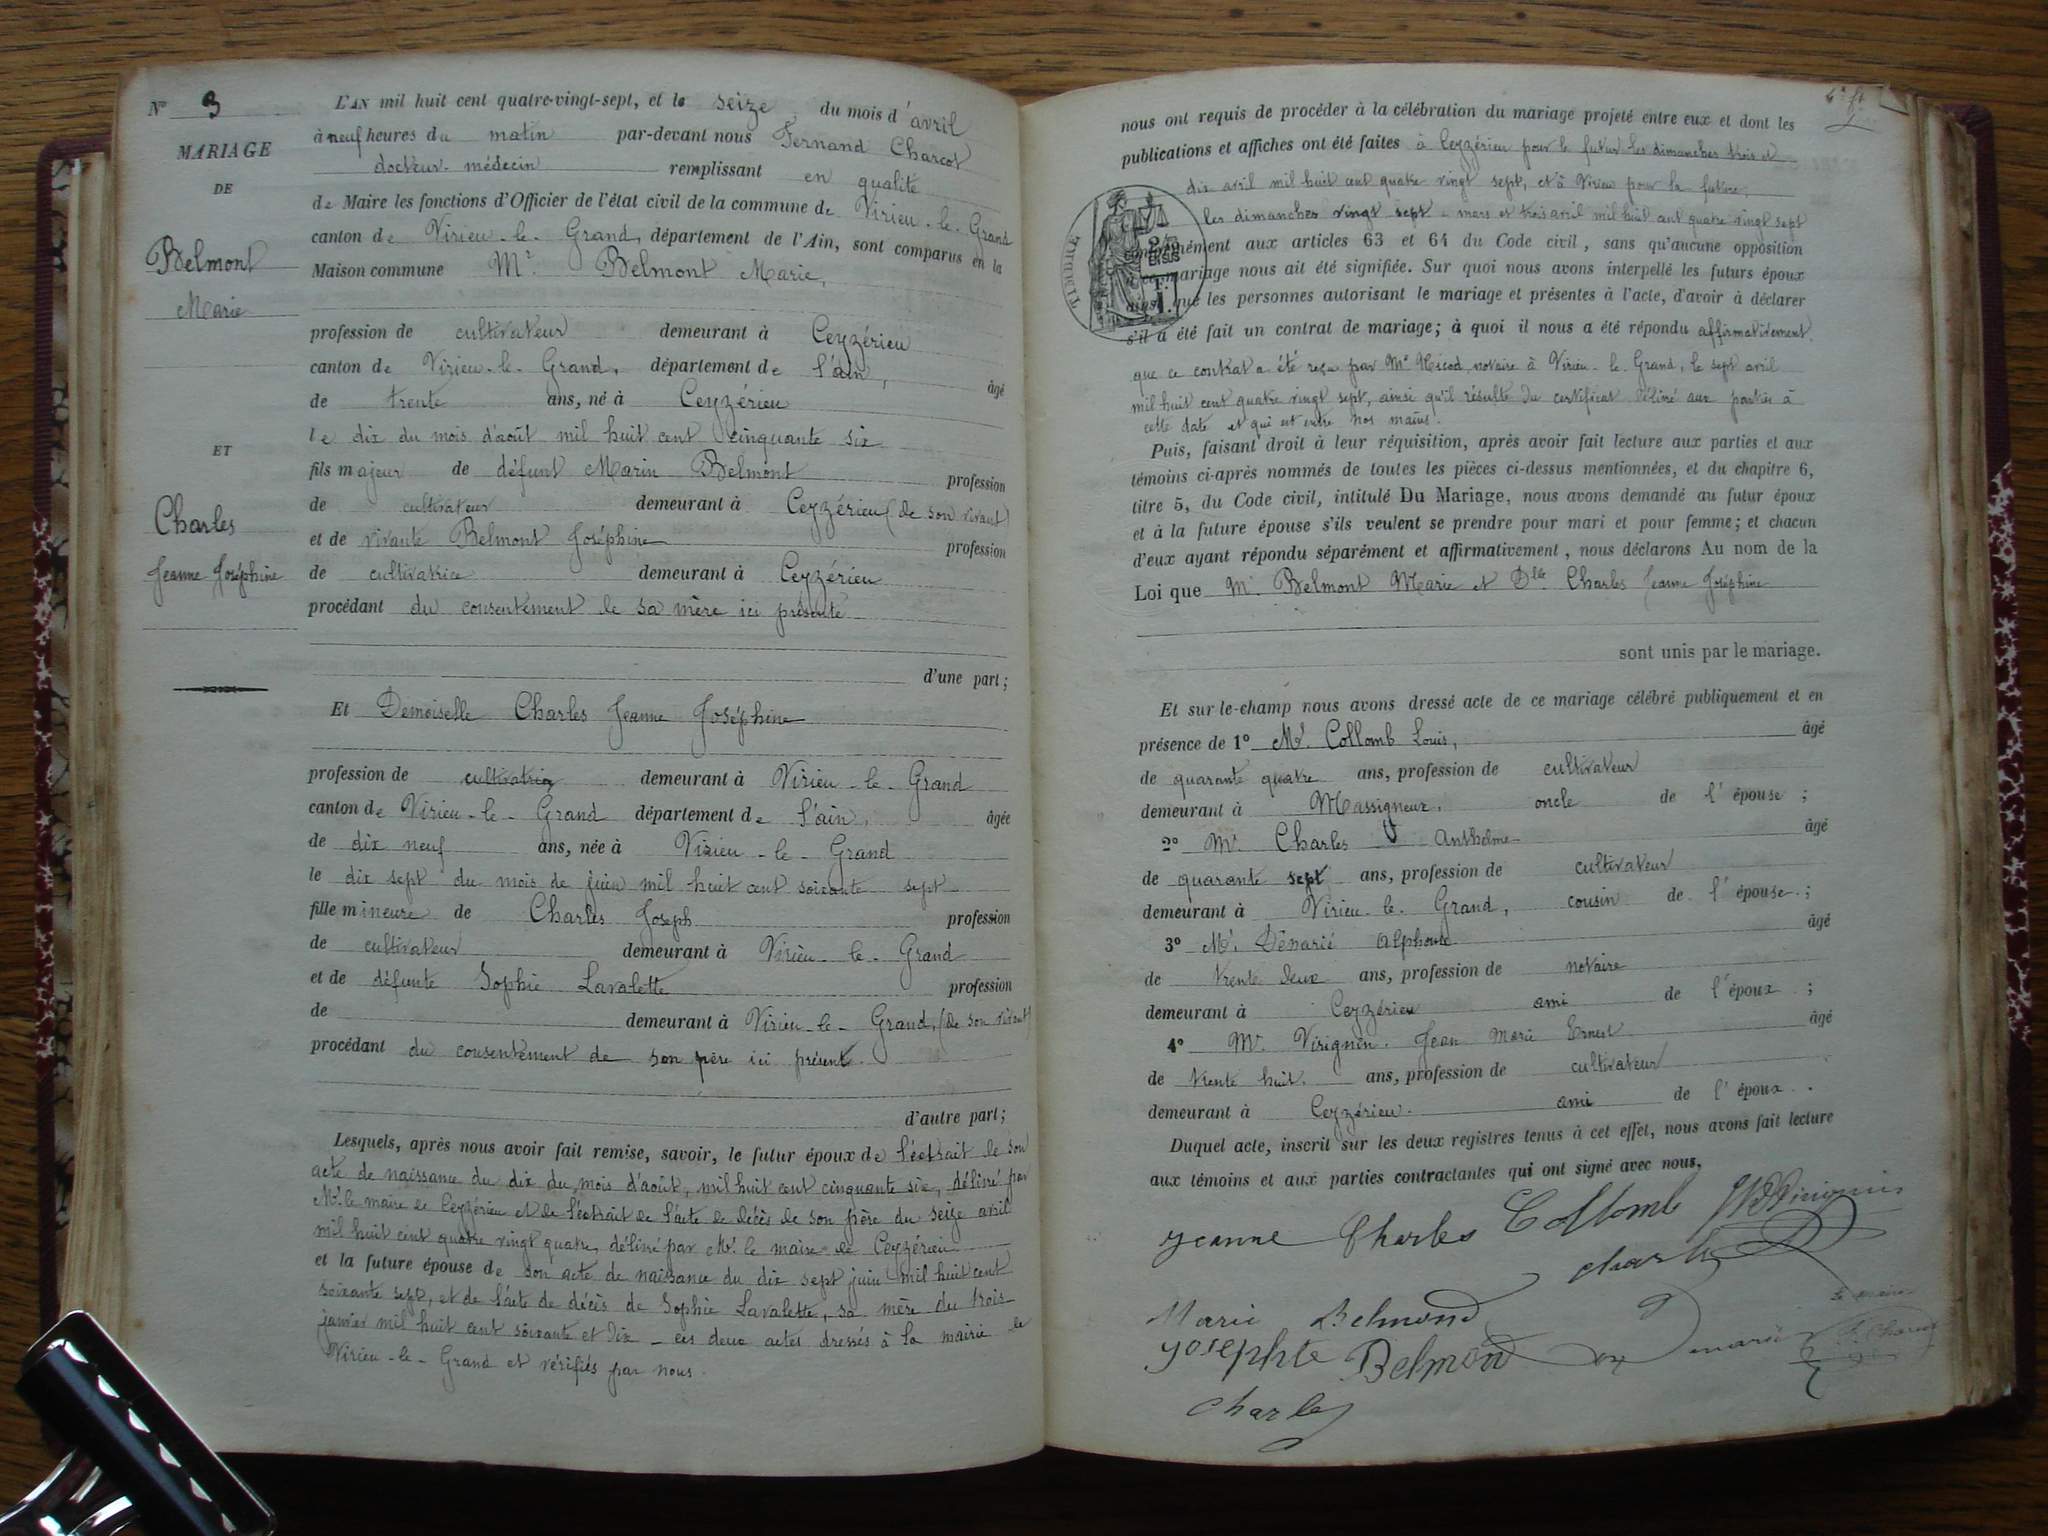 N° 3
MARIAGE
DE
Belmont
Marie
ET
Charles
Jeanne Joséphine
L'AN mil huit cent quatre-vingt-sept, et le seize du mois d'avril
à neuf heures du matin par-devant nous Fernand Charcot
docteur-médecin remplissant en qualité
de Maire les fonctions d'Officier de l'état civil de la commune de Virieu-le-Grand
canton de Virieu-le-Grand, département de l'Ain, sont comparus en la
Maison commune Mr Belmont Marie,
profession de cultivateur demeurant à Ceyzérieu
canton de Virieu-le-Grand, département de l'ain, âgé
de trente ans, né à Ceyzérieu
le dix du mois d'août mil huit cent cinquante six
fils majeur de défunt Marin Belmont profession
de cultivateur demeurant à Ceyzérieu (de son vivant)
et de vivante Belmont Joséphine profession
de cultivatrice demeurant à Ceyzérieu
procédant du consentement de sa mère ici présente
d'une part;
Et Demoiselle Charles Jeanne Joséphine
profession de cultivatrice demeurant à Virieu-le-Grand
canton de Virieu-le-Grand département de l'ain, âgée
de dix neuf ans, née à Virieu-le-Grand
le dix sept du mois de juin mil huit cent soixante sept
fille mineure de Charles Joseph profession
de cultivateur demeurant à Virieu-le-Grand
et de défunte Sophie Lavalette profession
de demeurant à Virieu-le-Grand, (de son vivant)
procédant du consentement de son père ici présent.
d'autre part;
Lesquels, après nous avoir fait remise, savoir, le futur époux de l'extrait de son
acte de naissance du dix du mois d'août, mil huit cent cinquante six, délivré par
Mr le maire de Ceyzérieu et de l'extrait de l'acte de décès de son père du seize avril
mil huit cent quatre vingt quatre, délivré par Mr le maire de Ceyzérieu
et la future épouse de son acte de naissance du dix sept juin mil huit cent
soixante sept, et de l'acte de décès de Sophie Lavalette, sa mère du trois
janvier mil huit cent soixante et dix - ces deux actes dressés à la mairie de
Virieu-le-Grand et vérifiés par nous.
nous ont requis de procéder à la célébration du mariage projeté entre eux et dont les
publications et affiches ont été faites à Ceyzérieu pour le futur les dimanches trois et
dix avril mil huit cent quatre vingt sept, et à Virieu pour la future,
les dimanches vingt sept mars et trois avril mil huit cent quatre vingt sept
conformément aux articles 63 et 64 du Code civil, sans qu'aucune opposition
à ce mariage nous ait été signifiée. Sur quoi nous avons interpellé les futurs époux
ainsi que les personnes autorisant le mariage et présentes à l'acte, d'avoir à déclarer
s'il a été fait un contrat de mariage; à quoi il nous a été répondu affirmativement.
TIMBRE
que ce contrat a été reçu par Me Nicod, notaire à Virieu-le-Grand, le sept avril
mil huit cent quatre vingt sept, ainsi qu'il résulte du certificat délivré aux parties à
cette date et qui est entre nos mains.
Puis, faisant droit à leur réquisition, après avoir fait lecture aux parties et aux
témoins ci-après nommés de toutes les pièces ci-dessus mentionnées, et du chapitre 6,
titre 5, du Code civil, intitulé Du Mariage, nous avons demandé au futur époux
et à la future épouse s'ils veulent se prendre pour mari et pour femme; et chacun
d'eux ayant répondu séparément et affirmativement, nous déclarons Au nom de la
Loi que Mr Belmont Marie et Dlle Charles Jeanne Joséphine
sont unis par le mariage.
Et sur-le-champ nous avons dressé acte de ce mariage célébré publiquement et en
présence de 1° Mr Collomb Louis, âgé
de quarante quatre ans, profession de cultivateur
demeurant à Massigneux, oncle de l'épouse;
2° Mr Charles Anthelme âgé
de quarante sept ans, profession de cultivateur
demeurant à Virieu-le-Grand, cousin de l'épouse;
3° Mr Dénarié Alphonse âgé
de trente deux ans, profession de notaire
demeurant à Ceyzérieu ami de l'époux;
4° Mr Virignin Jean Marie Ernest âgé
de trente huit ans, profession de cultivateur
demeurant à Ceyzérieu. ami de l'époux.
Duquel acte, inscrit sur les deux registres tenus à cet effet, nous avons fait lecture
aux témoins et aux parties contractantes qui ont signé avec nous.
Jeanne Charles Collomb
Charles
Marie Belmond
Le maire
Josephte Belmond
Charles